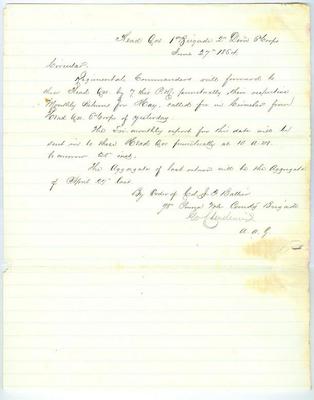 Head Qrs 1st Brigade 2d Divn 6 Corps
June 27th 1864
Circular
Regimental Commanders will forward to
these Head Qrs by 7 this P.M. punctually their respective
Monthly Returns for May. Called for in Circular from
Head Qrs 6 Corps of yesterday.
The Tri-monthly report for this date will be
sent in to these Head Qrs punctually at 10 A.M.
tomorrow 28th inst.
The Aggregate of last return will be the Aggregate
of April 29th last
By Order of Col J. F. Ballier
98 Penna Vols Comdg Brigade
A. A. G